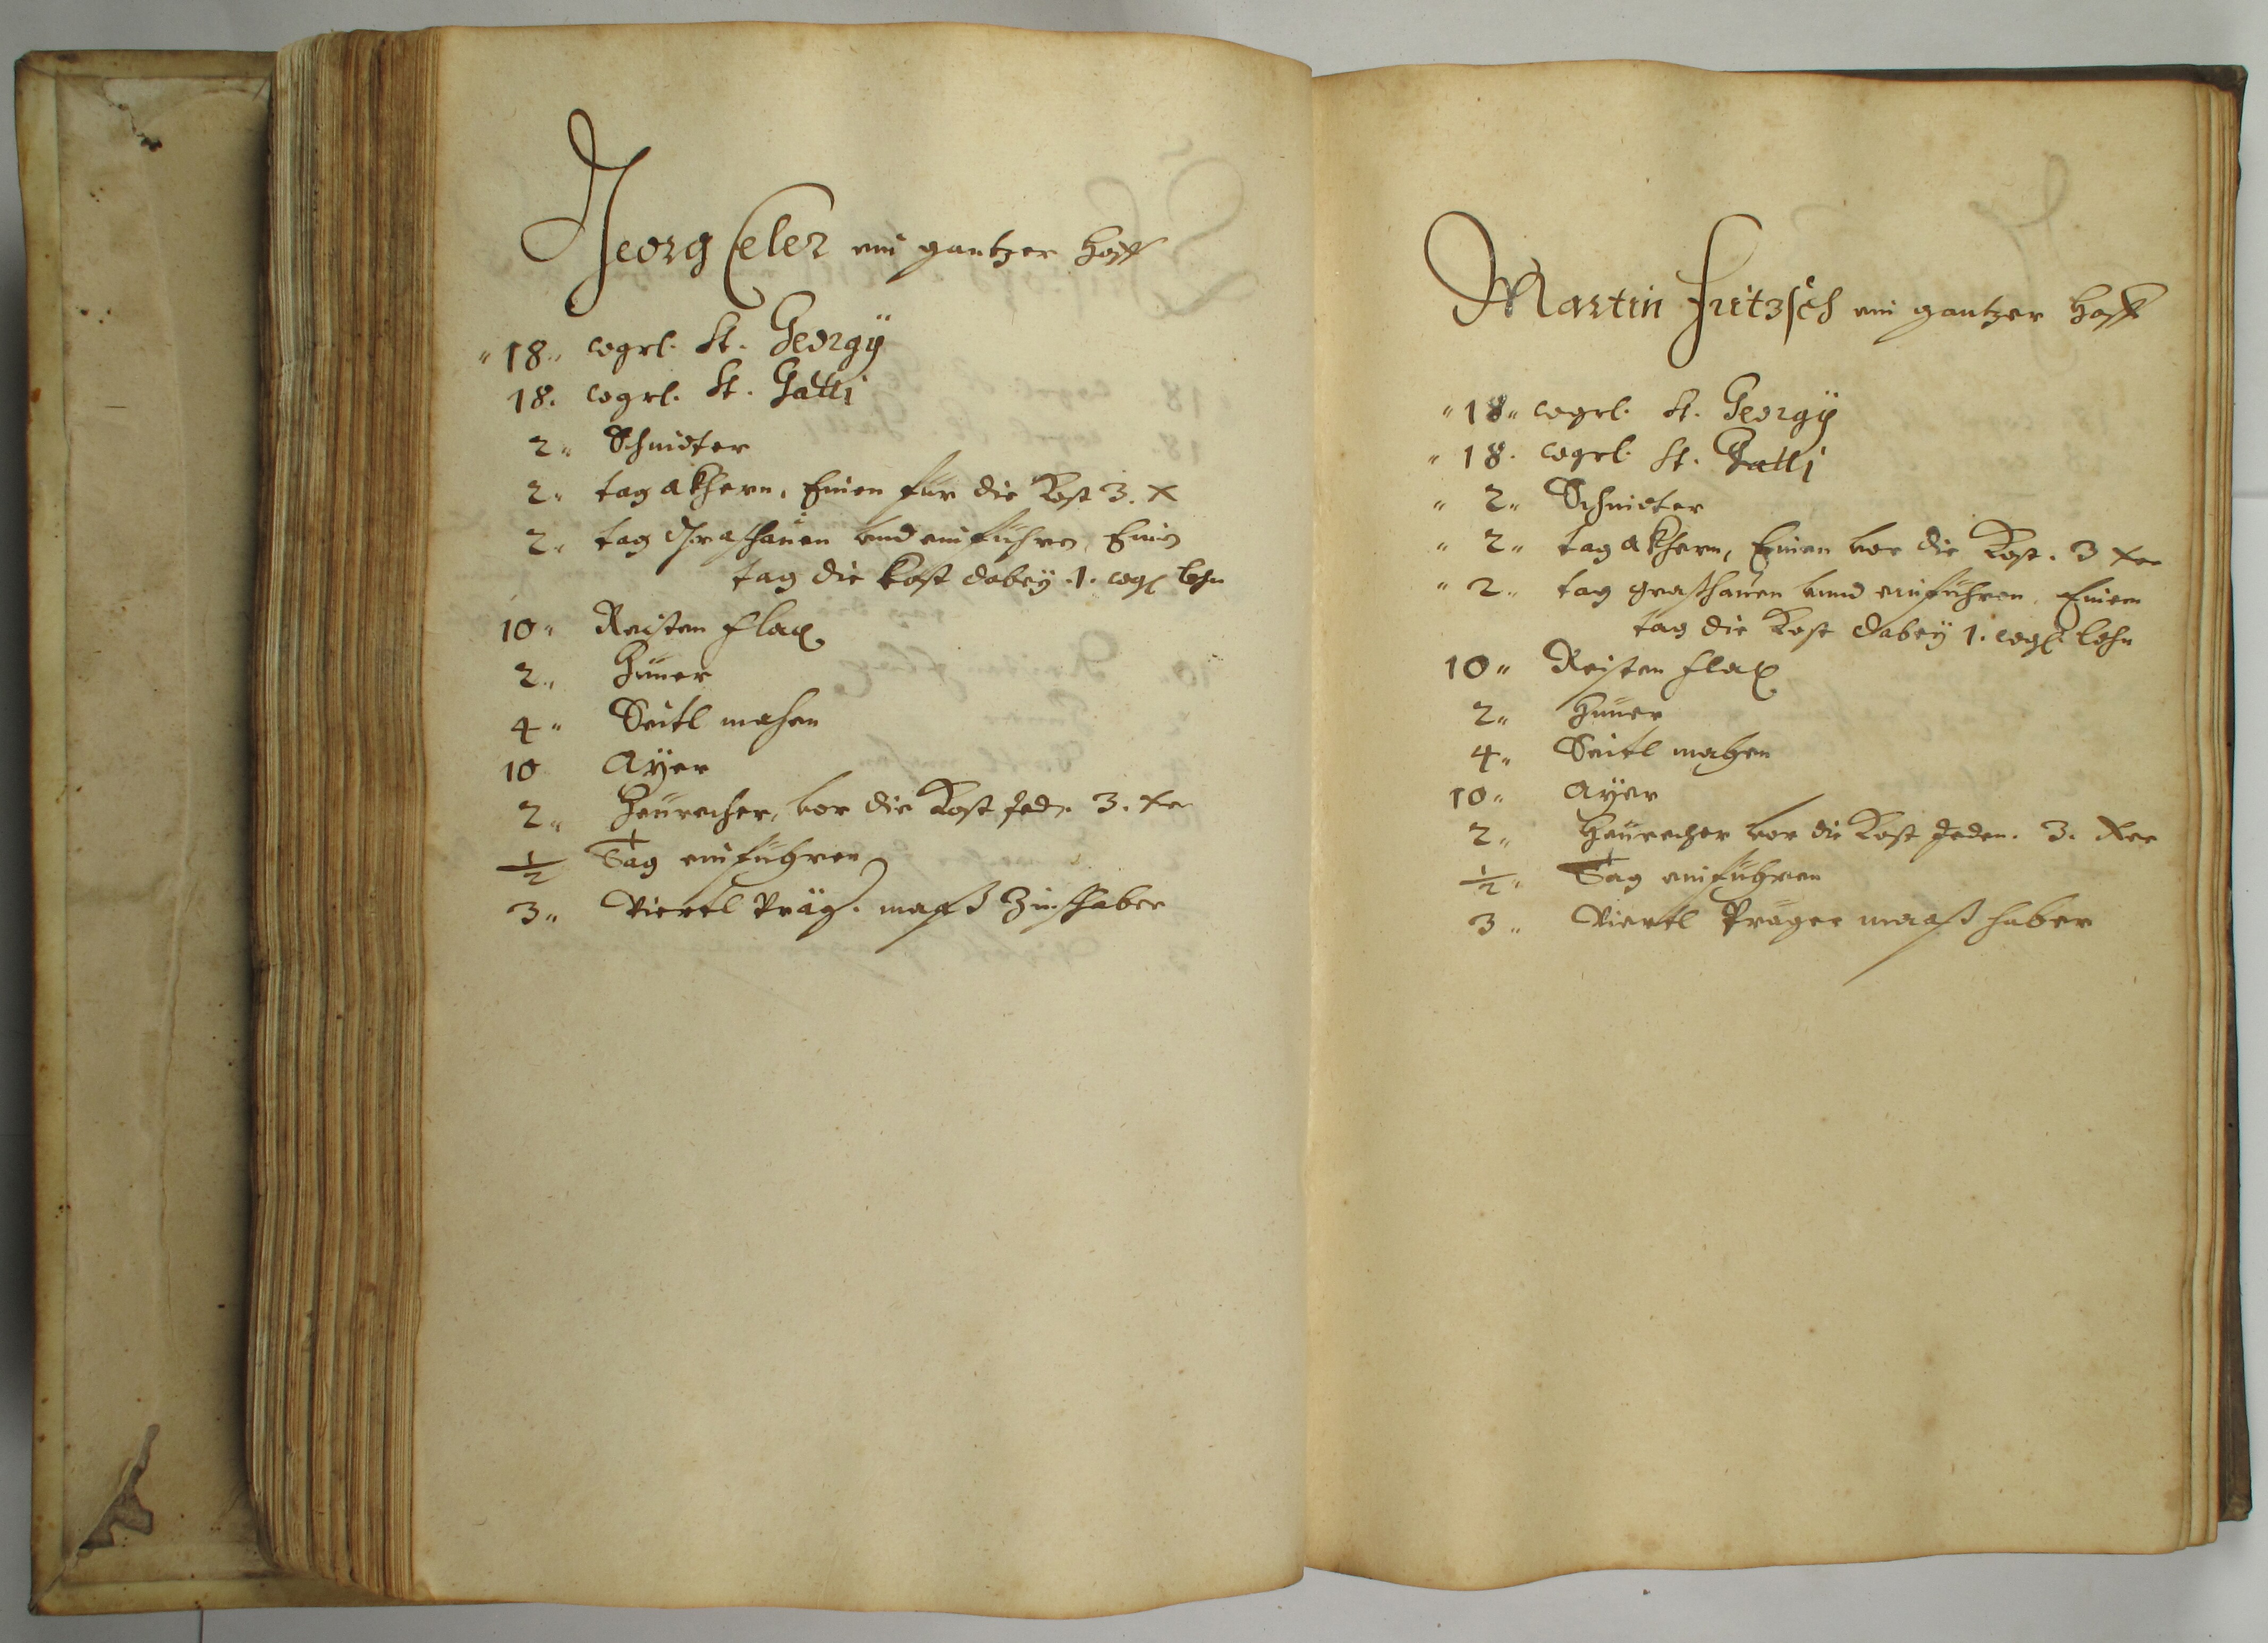 Georg Eeler ein gantzer Hoff
" 18 " wgrl. St. Georgÿ
18. wgrl. St. Galli
2 " Schnidter
2 " tag akhern, Einen für die Kost 3. x
2 " tag Graßhauen und einführen, Einen
tag die Kost dabeÿ 1. wgl lohn
10 " Reisten flax
2 " Hüner
4 " Seitl mahen
10 Aÿer
2 " Heurecher, vor die Kost Jedn 3. xr
1/2 Tag einführen
3 " Viertl Präg. maaß Zinßhaber
Martin Fritzsch ein gantzer Hoff
" 18 " wgrl. St. Georgÿ
" 18. wgrl. St. Galli
" 2 " Schnidter
" 2 " tag akhern, Einen vor die Kost. 3 xr
" 2 " tag graßhauen unnd einführen. Einen
tag die Kost dabeÿ 1. wgl. lohn
10 " Reisten flax
2 " Hüner
4 " Seitl mahen
10 " Aÿer
2 " Heurecher vor die Kost Jeden. 3. Xer
1/2 " Tag einführen
3 " Viertl Prager maaß haber